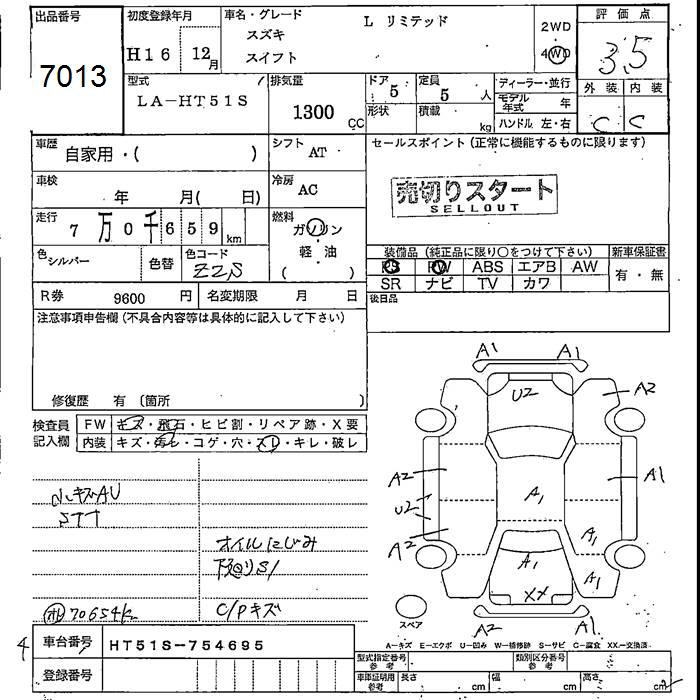 出品番号
7013
初度登録年月
H16 12月
車名・グレード
スズキ
スイフト
L リミテッド
2WD
4WD
評価点
3.5
型式
LA-HT51S
排気量
1300
CC
ドア 5
定員 5 人
形状
積載
kg
ディーラー・並行
モデル年式 年
ハンドル 左・右
外装 内装
C C
車歴
自家用・( )
シフト
AT
セールスポイント (正常に機能するものに限ります)
車検
年 月( 日)
冷房
AC
売切りスタート
SELLOUT
走行
7万0千659km
燃料
ガソリン
軽・油
( )
色
シルバー
色替
色コード
ZZS
装備品 (純正品に限り○をつけて下さい)
新車保証書
PS PW ABS エアB AW
有・無
SR ナビ TV カワ
R券 9600 円
名変期限 月 日
後日品
注意事項申告欄 (不具合内容等は具体的に記入して下さい)
修復歴 有 (箇所 )
検査員
記入欄
FW キズ・飛石・ヒビ割・リペア跡・X要
内装 キズ・汚レ・コゲ・穴・スレ・キレ・破レ
小キズAU
STT
オイルにじみ
下回りS1
70654k
C/Pキズ
A1 A1
U2
A2
A2
A1
U2
A1
A2
A1
A1
A1
XX
A2 A1
スペア
A-キズ E-エクボ U-凹み W-補修跡 S-サビ C-腐食 XX-交換済
4
車台番号 HT51S-754695
登録番号
型式指定番号
参考
類別区分番号
参考
車庫証明用
参考
長さ cm
幅 cm
高さ cm